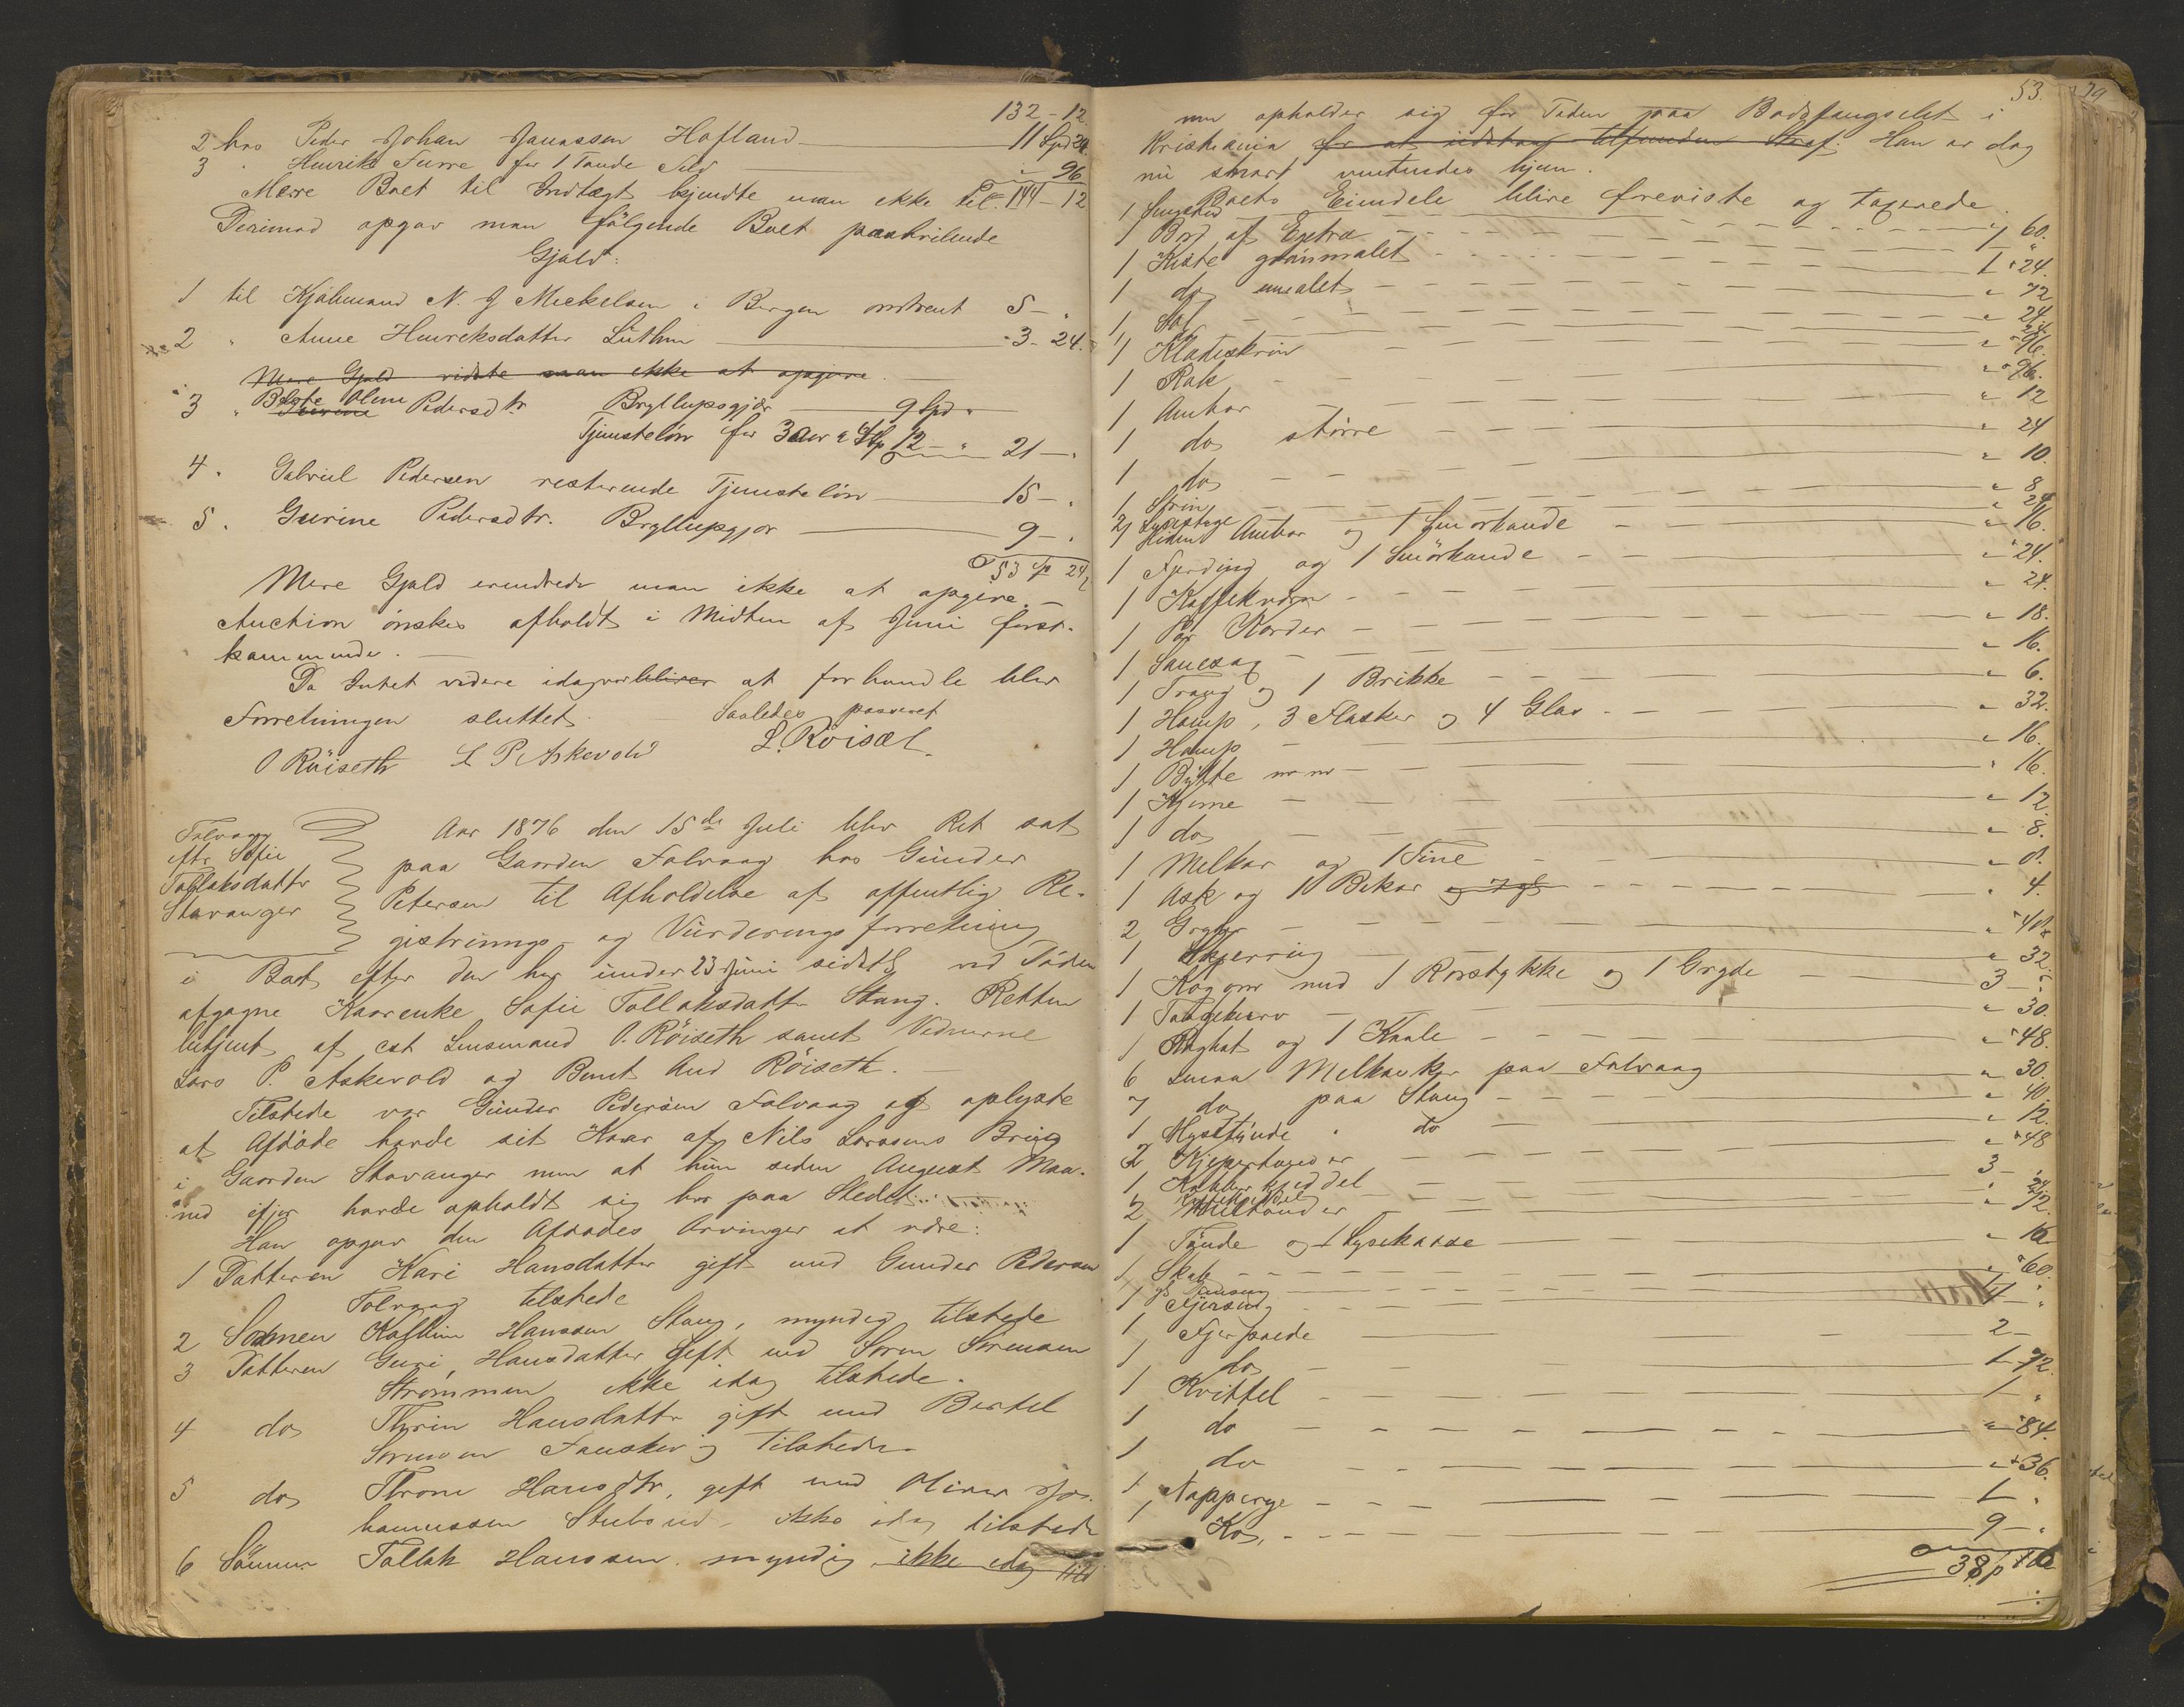 132 - 12
2 hos Peder Johan Janassen Hofland 11 Spd 24
3 " Henrik Furre for 1 Tønde Sild " 96
Mere Boet til Indtægt kjendte man ikke til. 144 - 12
Derimod opgav man følgende Boet paahvilende
Gjæld:
1 til Kjøbmand N. J Mickelsen i Bergen omtrent 5 - "
2 " Anne Henriksdatter Lüthun - 3 - 24.
Mere Gjæld vidste man ikke at opgive.
3 " Berthe Oline Pedersdtr Bryllupsgjær 9 Spd "
Tjenesteløn for 3 Aar a 4 Sp 12 - " 21 - "
4 " Gabriel Pedersen resterende Tjenesteløn 15 - "
5 " Gurine Pedersdtr. Bryllupgjær 9 - "
53 Sp 24
Mere Gjæld erindrede man ikke at opgive. -
Auction ønskes afholdt i Midten af Juni først-
kommende. -
Da Intet videre idag var at forhandle blev
Forretningen sluttet. Saaledes passeret
O Röiseth L P. Askevold L. Röisæt.
Folvaag
eftr Sofie
Tollaksdattr
Stavanger
Aar 1876 den 15de Juli blev Ret sat
paa Gaarden Folvaag hos Günder
Petersen til Afholdelse af offentlig Re-
gistrerings- og Vürderingsforretning
i Boet efter den her ünder 23 Juni sidstl ved Døden
afgagne Kaarenke Sofie Tollaksdattr Stang. Retten
betjent af cst Lensmand O. Röiseth samt Vidnerne
Lars P. Askevold og Bernt And Röiseth.
Tilstede var Günder Pedersen Folvaag og oplyste
at Afdøde havde sit Kaar af Nils Larsens Brug
i Gaarden Stavanger men at hun siden August Maa-
ned ifjor havde opholdt sig her paa Stedet.
Han opgav den Afdødes Arvinger at være:
1 Datteren Kari Hansdatter gift med Gunder Pedersen
Folvaag tilstede
2 Sønnen Hanssen Stang, myndig tilstede
3 Datteren Guri Hansdatter Gift med Søren Sørensen
Strømmen ikke idag tilstede.
4 do Thrin Hansdattr gift med Bertel
Sørensen tilstede.
5 do Throne Hansdtr, gift med Oliver Jo-
hannessen Stubseid, ikke idag tilstede
6 Sønnen Tollak Hanssen. myndig ikke idag tilst
53.
79
men opholder sig for Tiden paa Bodsfængselet i
Kristiania for at udstaa tilfunden Straf. Han er dog
nu snart ventendes hjem.
Boets Eiendele blive foreviste og taxerede.
1 Sengested
1 Bord af Eg " 60.
1 Kiste grønmalet 1 " 24.
1 do umalet " 72
1 Sal " 24.
1 Klædeskrin " 96.
1 Rok " 96.
1 Ambar " 12
1 do større " 24
1 do " 10.
1 Skrin " 8
2 Lysestage " 24
1 liden Ambar og 1 Smørkande " 16.
1 Fjerding og 1 Smørkande " 24.
1 Kaffekværn " 24.
1 Par Karder " 18.
1 Sauesax " 16.
1 Traug og 1 Brikke " 6.
1 Hamp, 3 Flasker og 4 Glas " 32.
1 Hamp " 16.
1 Bytte m m " 16.
1 Kjerne " 12
1 do " 8.
1 Melkar og 1 Tine " 8.
1 Ask og 10 Bikar " 4.
2 Gryder " 40
1 Skjerring " 32.
1 Kogovn med 1 Rørstykke og 1 Gryde 3 - "
1 Tougekurv " 30.
1 Raghat og 1 Kaale " 48.
6 smaa Melkasker paa Folvaag " 30.
7 do paa Stang " 40.
1 Hysttønde " do " 12.
2 Kjeperhoveder " 48
1 Kobberkjeddel 3 - "
Kaffekjeddel " 24
2 " 72.
1 Tønde og 1 Lysekasse " 16
1 Skab " 60.
1 Fjerseng 4 - "
1 Fjerpude 2 -
1 do 1 - 72.
1 Kvittel 1 - "
1 do " 84.
1 do " 36.
1 Napperye 1 - "
1 Ko 9 - "
38 sp 106